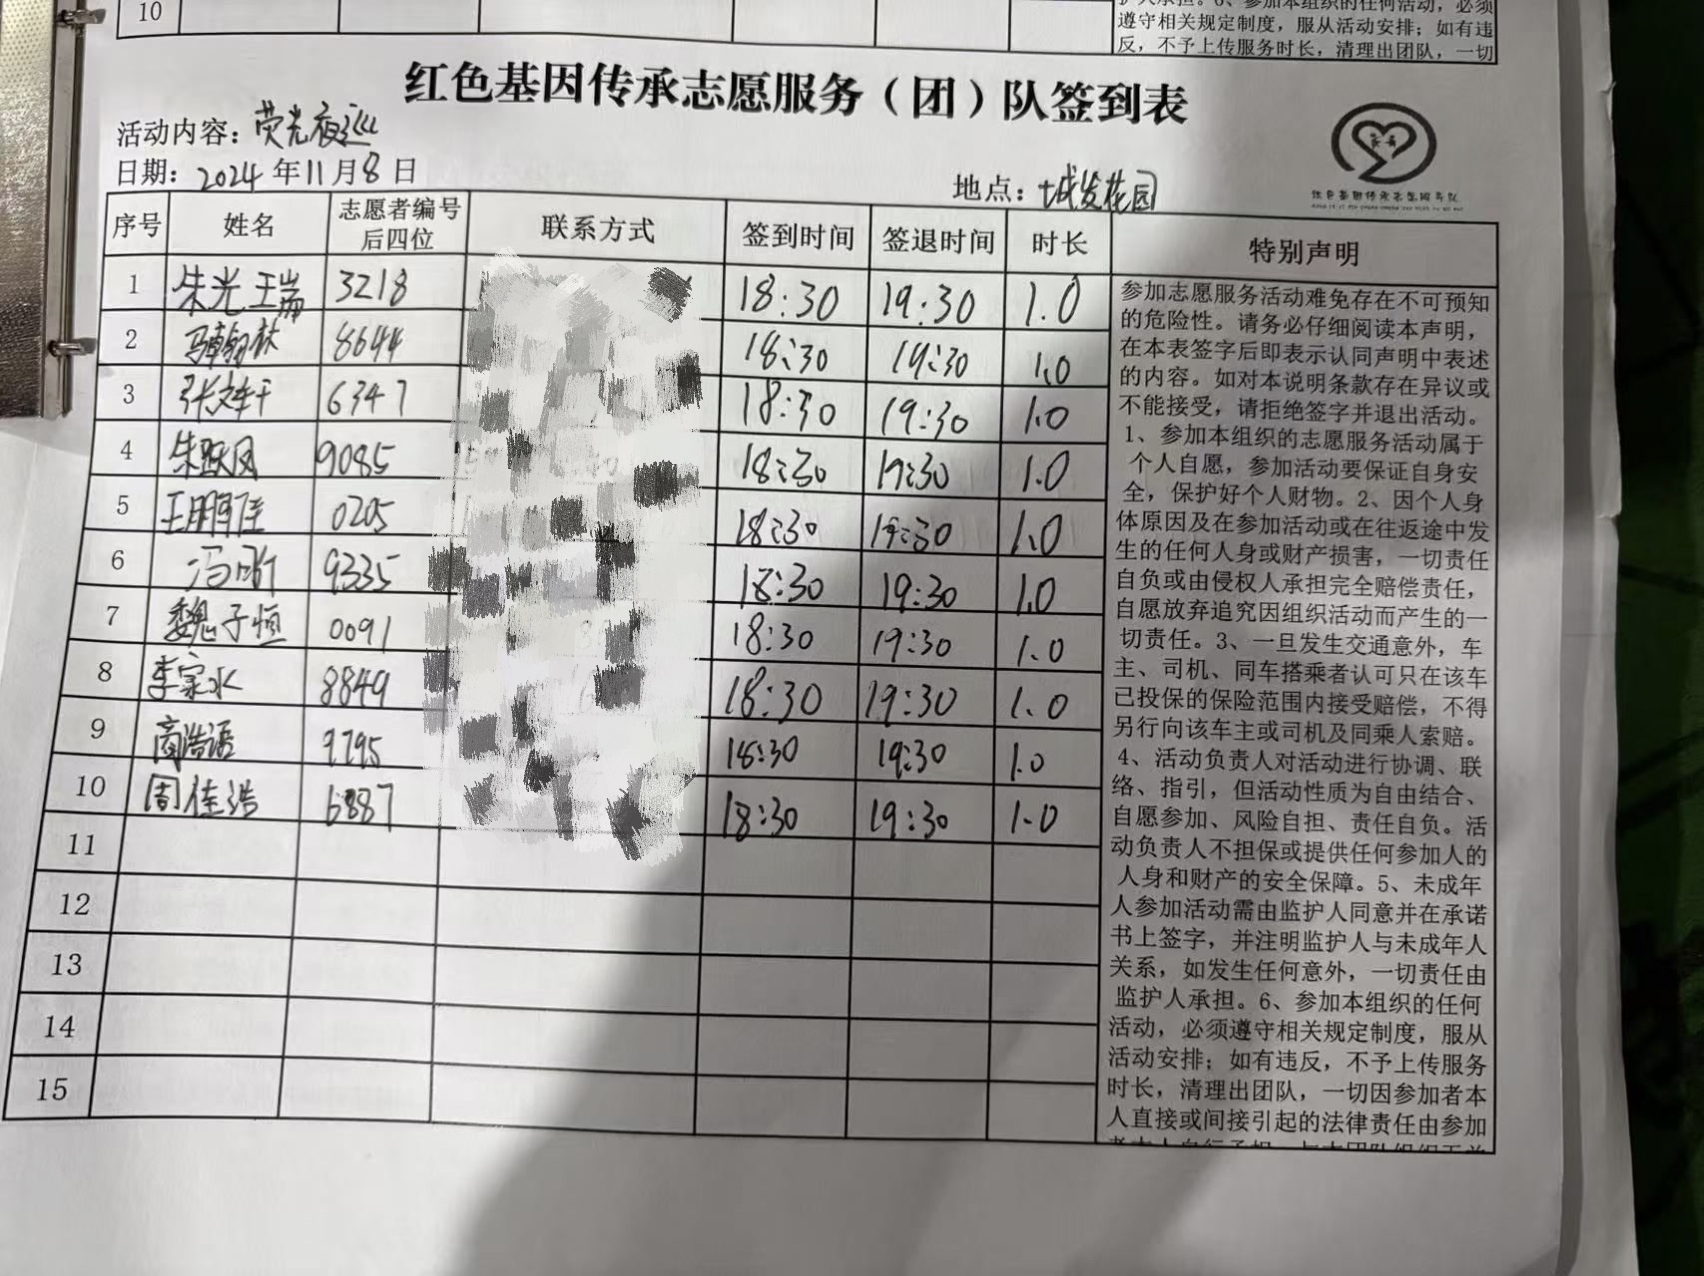 10
遵守相关规定制度，服从活动安排；如有违
反，不予上传服务时长，清理出团队，一切
红色基因传承志愿服务（团）队签到表
活动内容：荧光夜巡
日期：2024年11月8日
地点：城发花园
序号 姓名 志愿者编号后四位 联系方式 签到时间 签退时间 时长 特别声明
1 朱光 王瑞 3218 18:30 19:30 1.0
2 8644 18:30 19:30 1.0
3 6347 18:30 19:30 1.0
4 朱跃凤 9085 18:30 19:30 1.0
5 0205 18:30 19:30 1.0
6 冯昕 9335 18:30 19:30 1.0
7 魏子恒 0091 18:30 19:30 1.0
8 李家水 8849 18:30 19:30 1.0
9 商浩语 9795 18:30 19:30 1.0
10 周佳浩 6887 18:30 19:30 1.0
11
12
13
14
15
参加志愿服务活动难免存在不可预知
的危险性。请务必仔细阅读本声明，
在本表签字后即表示认同声明中表述
的内容。如对本说明条款存在异议或
不能接受，请拒绝签字并退出活动。
1、参加本组织的志愿服务活动属于
个人自愿，参加活动要保证自身安
全，保护好个人财物。2、因个人身
体原因及在参加活动或在往返途中发
生的任何人身或财产损害，一切责任
自负或由侵权人承担完全赔偿责任，
自愿放弃追究因组织活动而产生的一
切责任。3、一旦发生交通意外，车
主、司机、同车搭乘者认可只在该车
已投保的保险范围内接受赔偿，不得
另行向该车主或司机及同乘人索赔。
4、活动负责人对活动进行协调、联
络、指引，但活动性质为自由结合、
自愿参加、风险自担、责任自负。活
动负责人不担保或提供任何参加人的
人身和财产的安全保障。5、未成年
人参加活动需由监护人同意并在承诺
书上签字，并注明监护人与未成年人
关系，如发生任何意外，一切责任由
监护人承担。6、参加本组织的任何
活动，必须遵守相关规定制度，服从
活动安排；如有违反，不予上传服务
时长，清理出团队，一切因参加者本
人直接或间接引起的法律责任由参加